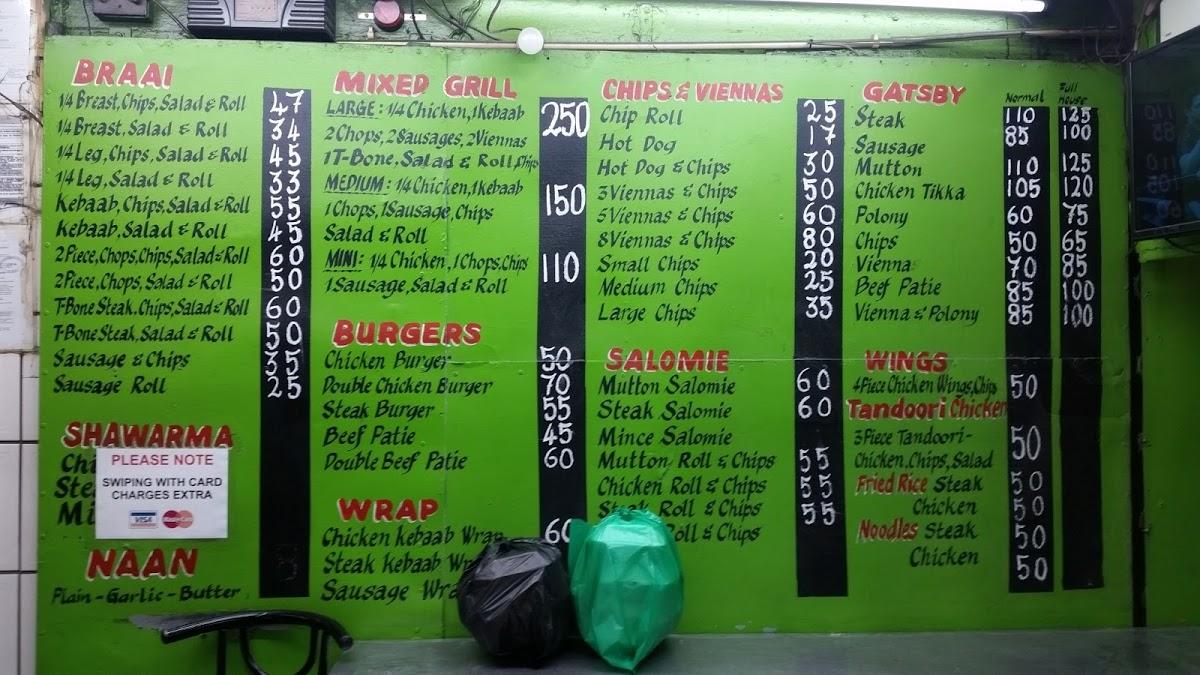 BRAAI
1/4 Breast,Chips,Salad & Roll 47
1/4 Breast, Salad & Roll 34
1/4 Leg, Chips, Salad & Roll 45
1/4 Leg, Salad & Roll 33
Kebaab, Chips, Salad & Roll 55
Kebaab, Salad & Roll 45
2 Piece, Chops, Chips, Salad & Roll 60
2 Piece, Chops, Salad & Roll 50
T-Bone Steak, Chips, Salad & Roll 60
T-Bone Steak, Salad & Roll 50
Sausage & Chips 35
Sausage Roll 25
SHAWARMA
PLEASE NOTE
SWIPING WITH CARD
CHARGES EXTRA
VISA MasterCard
NAAN
Plain - Garlic - Butter
MIXED GRILL
LARGE: 1/4 Chicken, 1 Kebaab 250
2 Chops, 2 Sausages, 2 Viennas
1 T-Bone, Salad & Roll, Chips
MEDIUM: 1/4 Chicken, 1 Kebaab 150
1 Chops, 1 Sausage, Chips
Salad & Roll
MINI: 1/4 Chicken, 1 Chops, Chips 110
1 Sausage, Salad & Roll
BURGERS
Chicken Burger 50
Double Chicken Burger 70
Steak Burger 55
Beef Patie 45
Double Beef Patie 60
WRAP
Chicken Kebaab Wrap 60
Steak Kebaab
Sausage
CHIPS & VIENNAS
Chip Roll 25
Hot Dog 17
Hot Dog & Chips 30
3 Viennas & Chips 50
5 Viennas & Chips 60
8 Viennas & Chips 80
Small Chips 20
Medium Chips 25
Large Chips 35
SALOMIE
Mutton Salomie 60
Steak Salomie 60
Mince Salomie
Mutton Roll & Chips 55
Chicken Roll & Chips 55
Steak Roll & Chips 55
Roll & Chips
GATSBY Normal Full House
Steak 110 125
Sausage 85 100
Mutton 110 125
Chicken Tikka 105 120
Polony 60 75
Chips 50 65
Vienna 70 85
Beef Patie 85 100
Vienna & Polony 85 100
WINGS
4 Piece Chicken Wings, Chips 50
Tandoori Chicken
3 Piece Tandoori- 50
Chicken, Chips, Salad
Fried Rice Steak 50
Chicken 50
Noodles Steak 50
Chicken 50